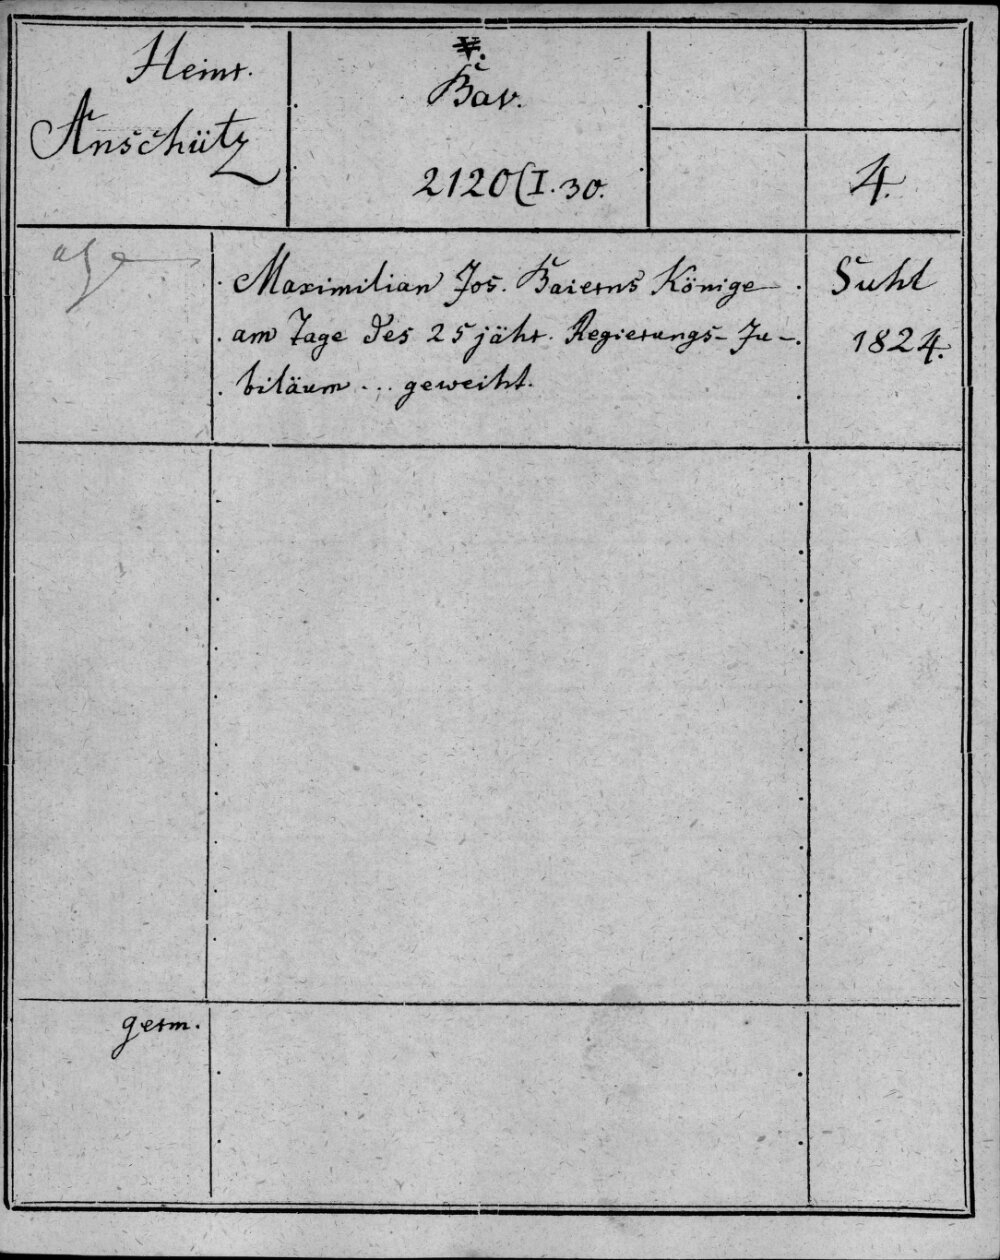 Heinr.
Anschütz
Bav.
2120(I.30.
4.
Maximilian Jos. Baierns Könige
am Tage des 25jähr. Regierungs-Ju-
biläum ... geweiht.
Suhl
1824.
germ.